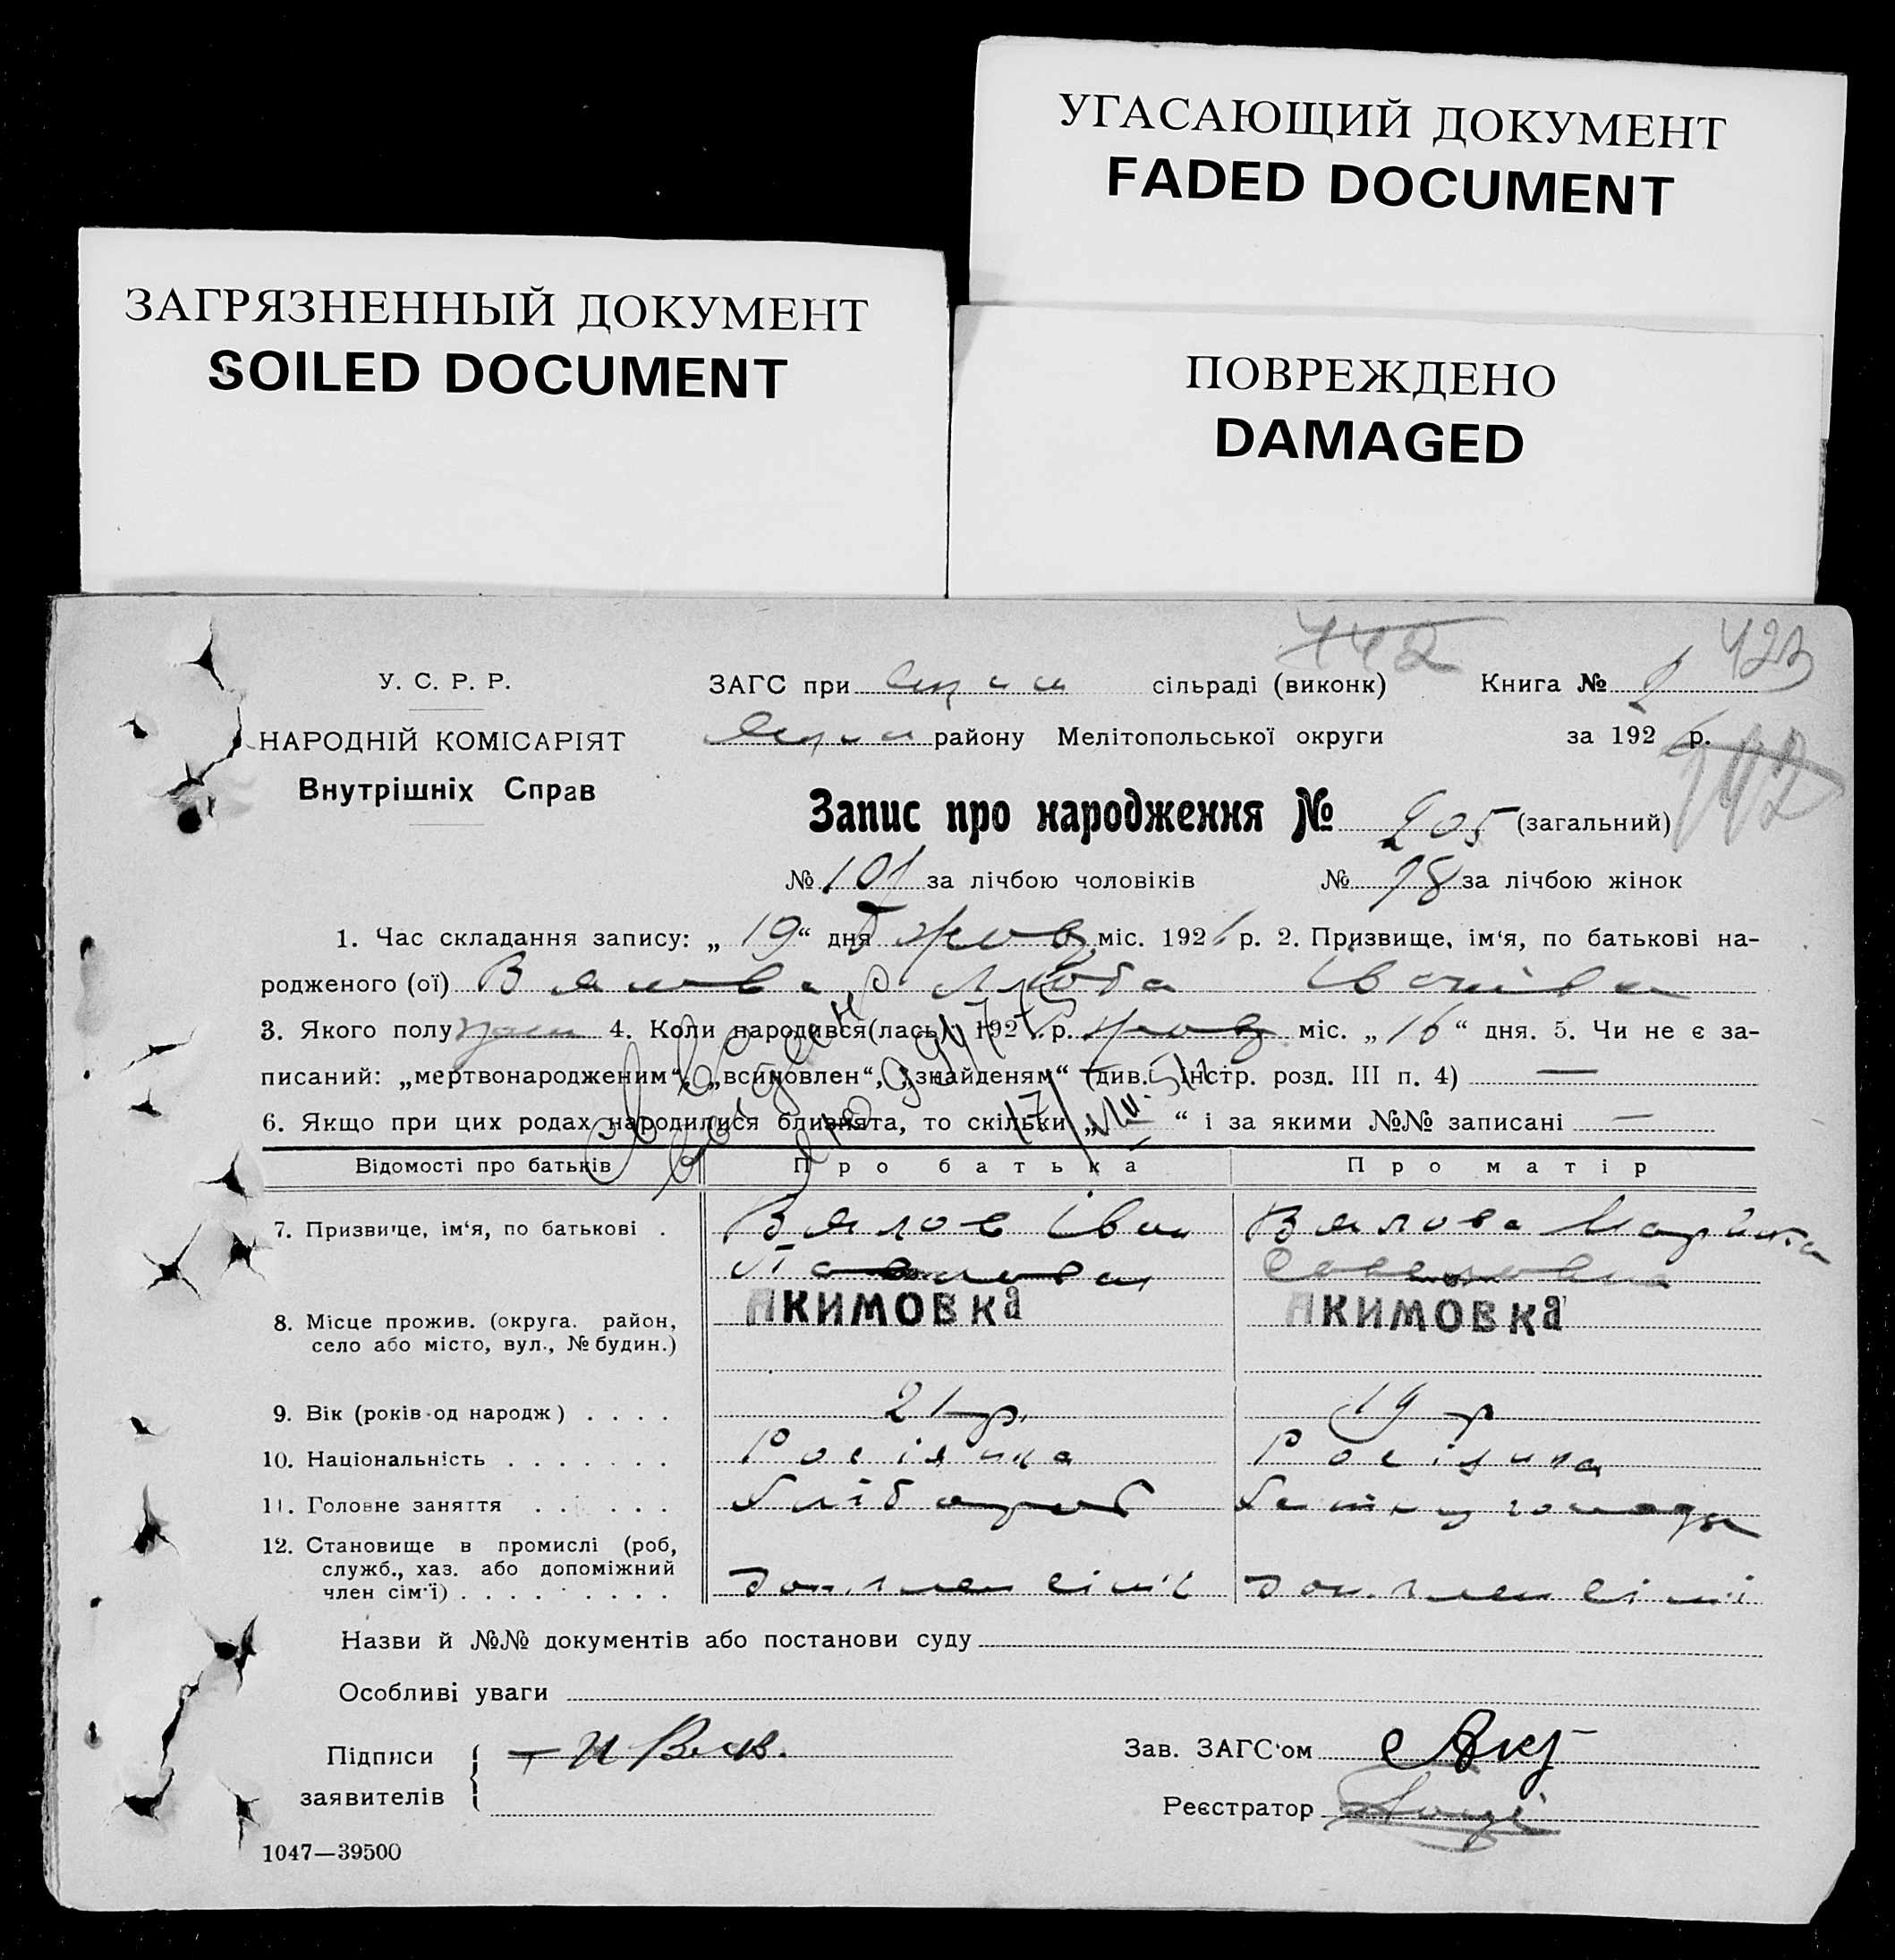 УГАСАЮЩИЙ ДОКУМЕНТ
FADED DOCUMENT
ЗАГРЯЗНЕННЫЙ ДОКУМЕНТ
SOILED DOCUMENT
ПОВРЕЖДЕНО
DAMAGED
442 423
У. С. Р. Р. ЗАГС при сільраді (виконк) Книга № 2
НАРОДНІЙ КОМІСАРІЯТ району Мелітопольської округи за 1926 р.
Внутрішніх Справ
442
Запис про народження № 205 (загальний)
№ 107 за лічбою чоловіків № 98 за лічбою жінок
1. Час складання запису: „ 19 “ дня жовт міс. 1926 р. 2. Призвище, ім‘я, по батькові на-
родженого (ої) Вялова Люба Іванівна
3. Якого полу жін 4. Коли народився(лась): 1926 р. жовт міс. „ 16 “ дня. 5. Чи не є за-
писаний: „мертвонародженим“, „всиновлен“, „знайденям“ (див. Інстр. розд. III п. 4) —
6. Якщо при цих родах народилися близнята, то скільки „ “ і за якими №№ записані —
Відомості про батьків Про батька Про матір
7. Призвище, ім‘я, по батькові . Вялов Іван Вялова Марія
8. Місце прожив. (округа. район, ЯКИМОВКА ЯКИМОВКА
село або місто, вул., № будин.)
9. Вік (років од народж) . . . . 21 р. 19 р
10. Національність . . . . . . . Росіянка Росіянка
11. Головне заняття . . . . . . Хлібороб
12. Становище в промислі (роб,
служб., хаз. або допоміжний
член сім'ї) . . . . . . . . . доп. член сім'ї доп. член сім'ї
Назви й №№ документів або постанови суду
Особливі уваги
Підписи Зав. ЗАГС‘ом
заявителів Реєстратор
1047—39500